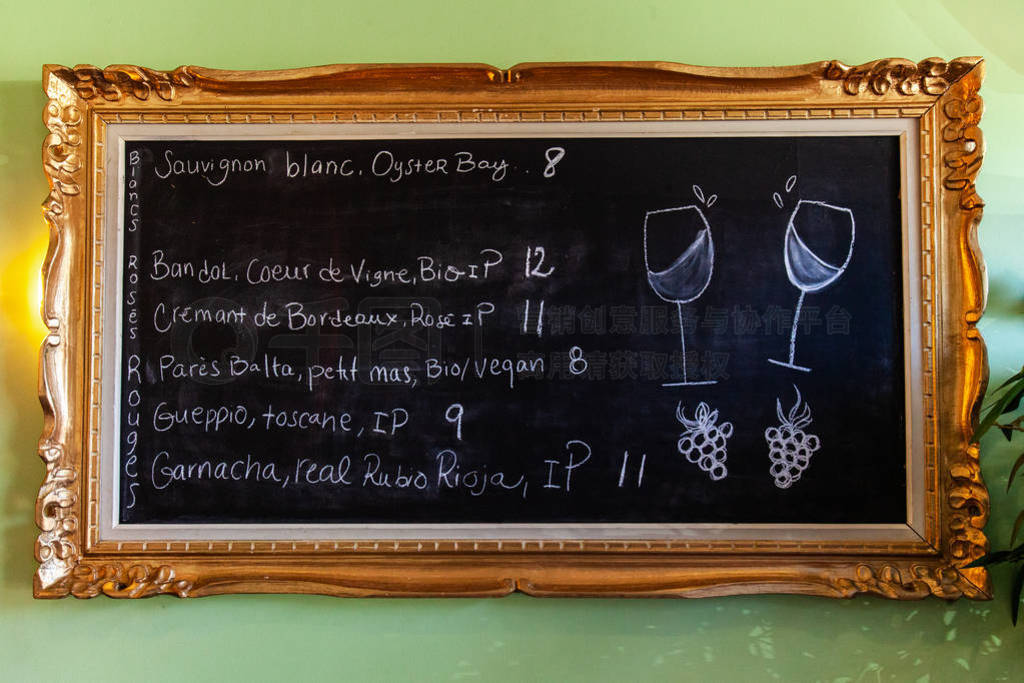 Blancs
Sauvignon blanc, Oyster Bay.. 8
Rosés
Bandol, Coeur de Vigne, Bio-IP 12
Crémant de Bordeaux, Rosé IP 11
Rouges
Parés Balta, petit mas, Bio/Vegan 8
Gueppio, toscane, IP 9
Garnacha, real Rubio Rioja, IP 11